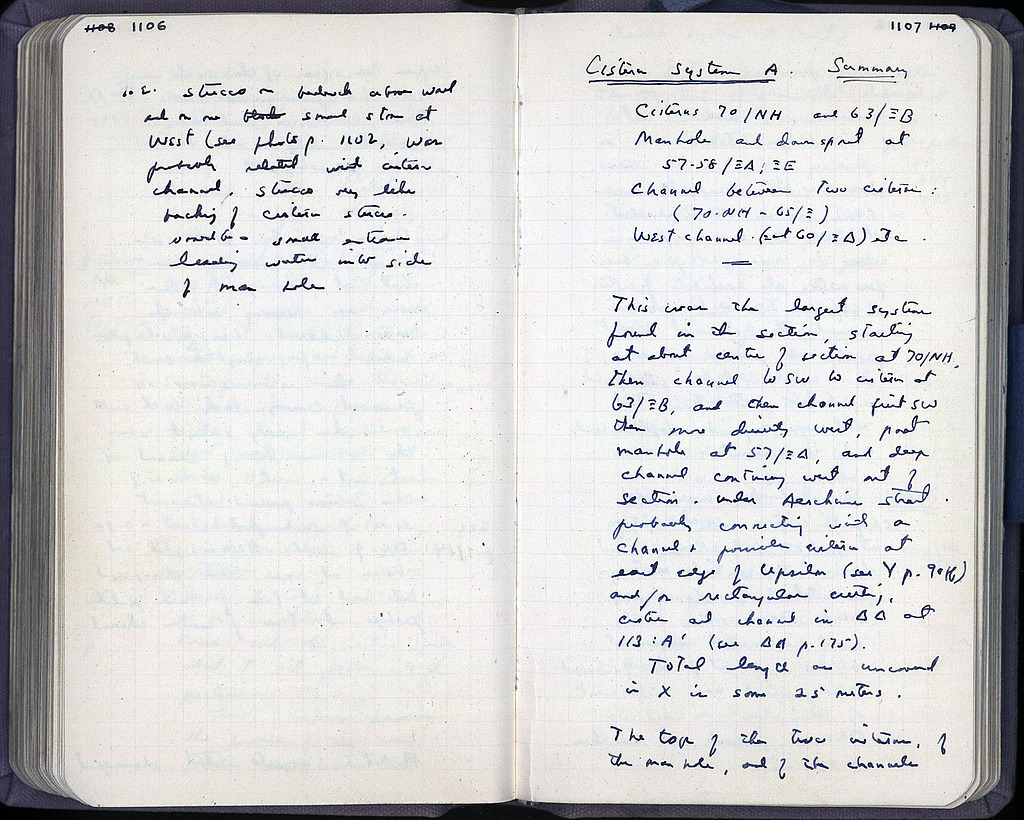 1108 1106
N.B. stucco on bedrock above west
and on one small stone at
West (see photo p. 1102, was
probably related with cistern
channel, stucco very like
backing of cistern stucco.
small entrance
leading water into side
of man hole
1107 1109
Cistern System A Summary
Cisterns 70/ΝΗ and 63/ΞΒ
Manhole and downspout at
57-58/ΞΔ; ΞΕ
Channel between two cisterns:
(70-ΝΗ - 65/Ξ)
West channel (at 60/ΞΔ) etc.
This was the largest system
found in the section, starting
at about centre of section at 70/ΝΗ,
then channel to SW to cistern at
63/ΞΒ, and then channel first SW
then more directly west, past
manhole at 57/ΞΔ, and deep
channel continuing west out of
section. under Aeschine street.
probably connecting with a
channel & possible cistern at
east edge of Upsilon (see Y p. 906)
and/or rectangular cutting,
cistern and channel in ΔΔ at
113:Α' (see ΔΔ p. 175).
Total length as uncovered
in X is some 25 meters.
The top of the two cisterns, of
the man hole, and of the channels